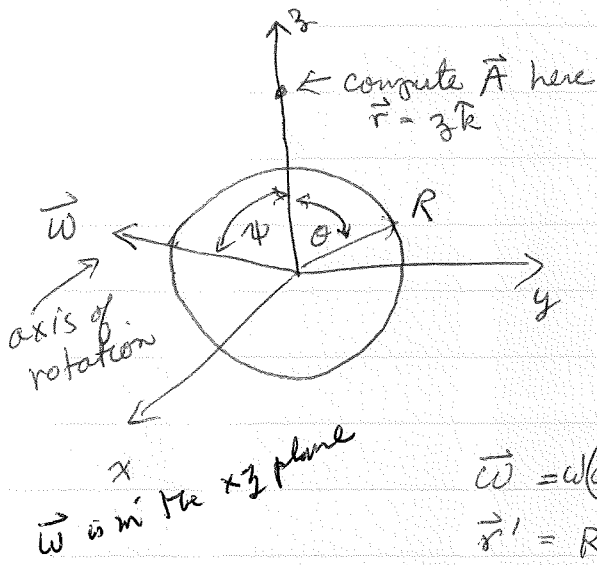 z
← compute A⃗ here
r⃗ = z k̂
R
ω⃗
ψ
θ
axis of
rotation
y
x
ω⃗ is in the xz plane
ω⃗ = ω(
r⃗' = R